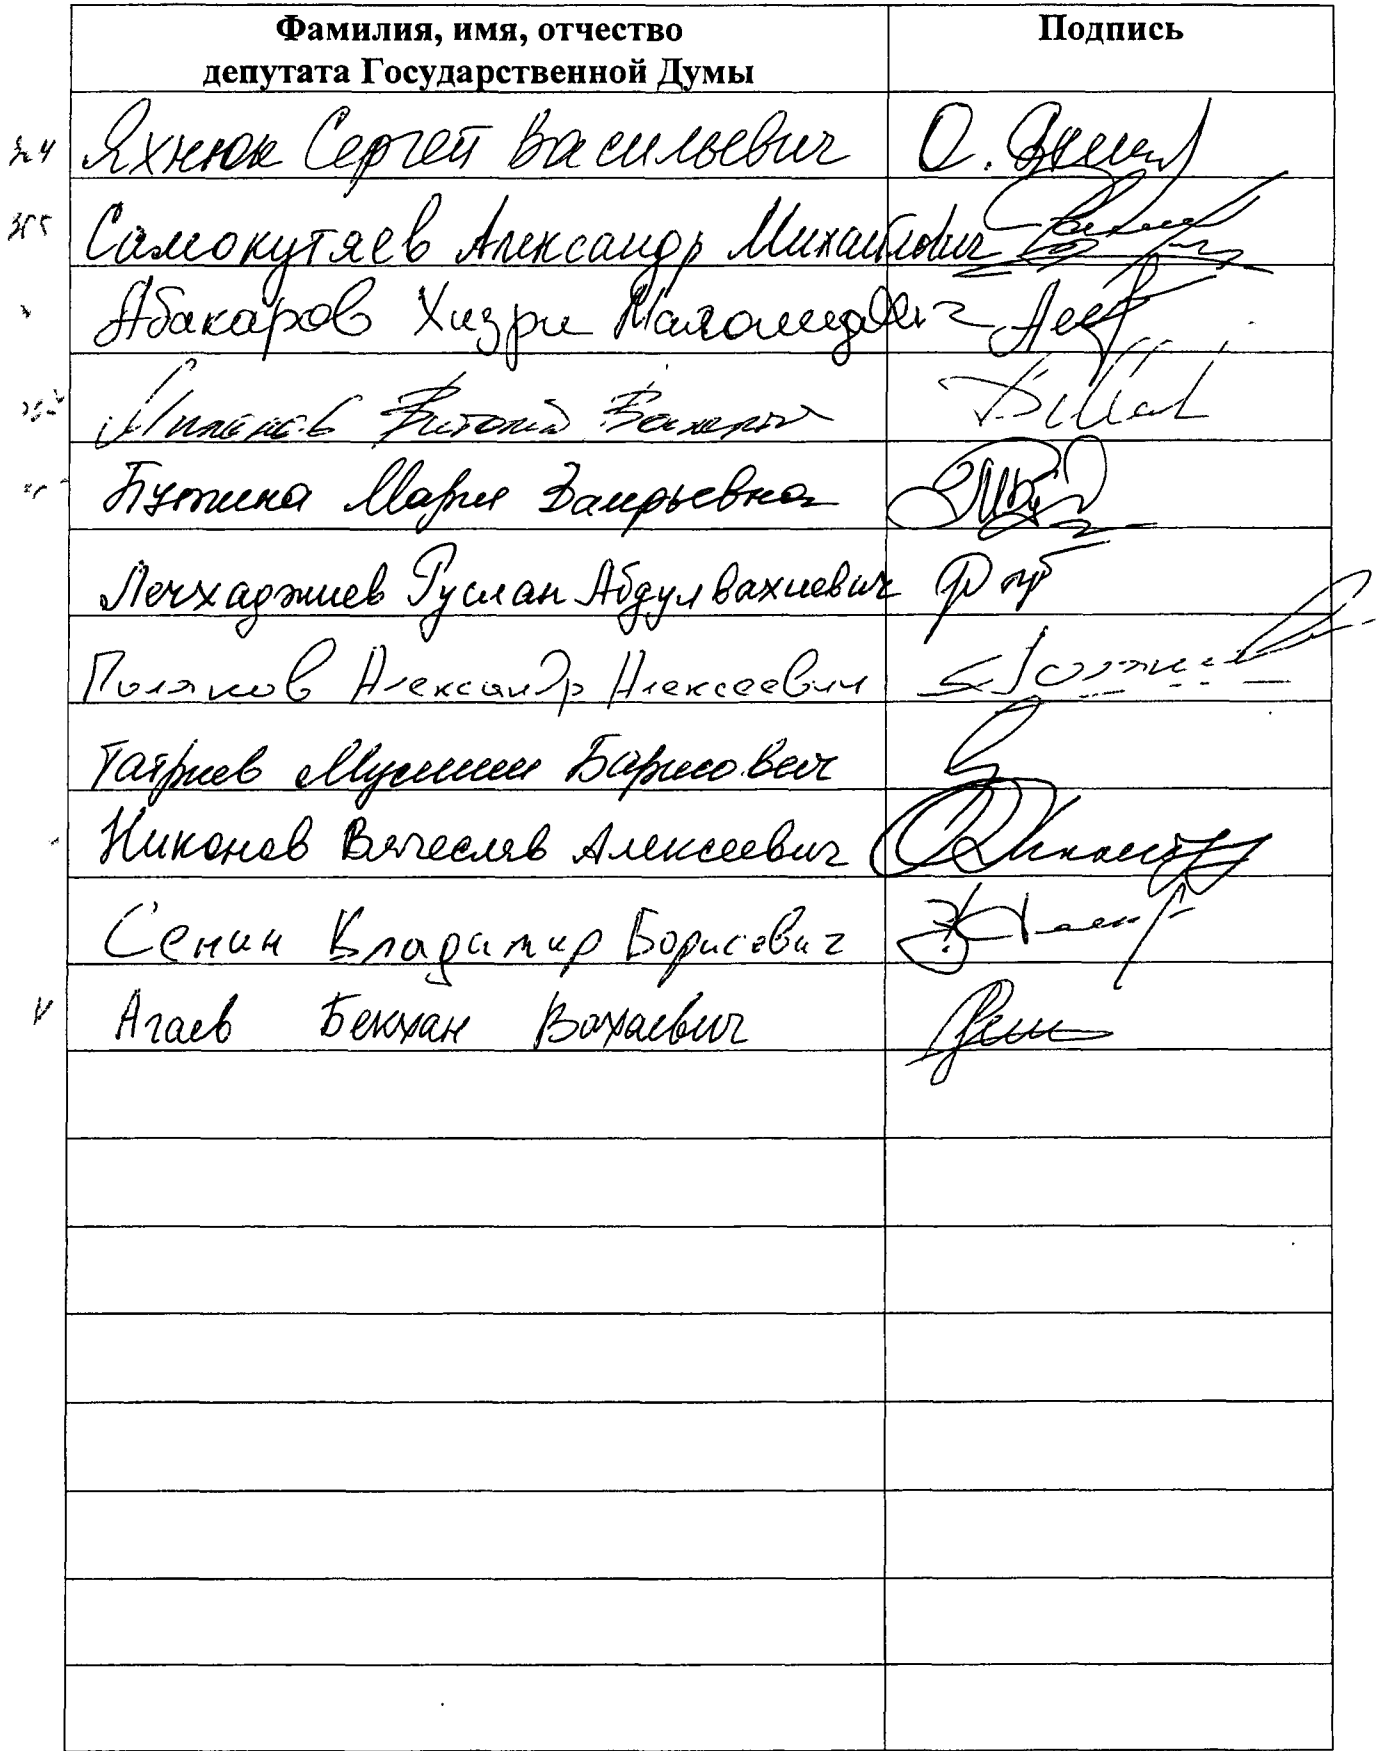 Фамилия, имя, отчество
депутата Государственной Думы
Подпись
Яхнюк Сергей Васильевич
Самокутяев Александр Михайлович
Абакаров Хизри Магомедович
Милонов Виталий Валентинович
Бутина Мария Валерьевна
Лечхаджиев Руслан Абдулвахиевич
Поляков Александр Алексеевич
Татриев Муслим Барисович
Никонов Вячеслав Алексеевич
Сенин Владимир Борисович
Агаев Бекхан Вахаевич